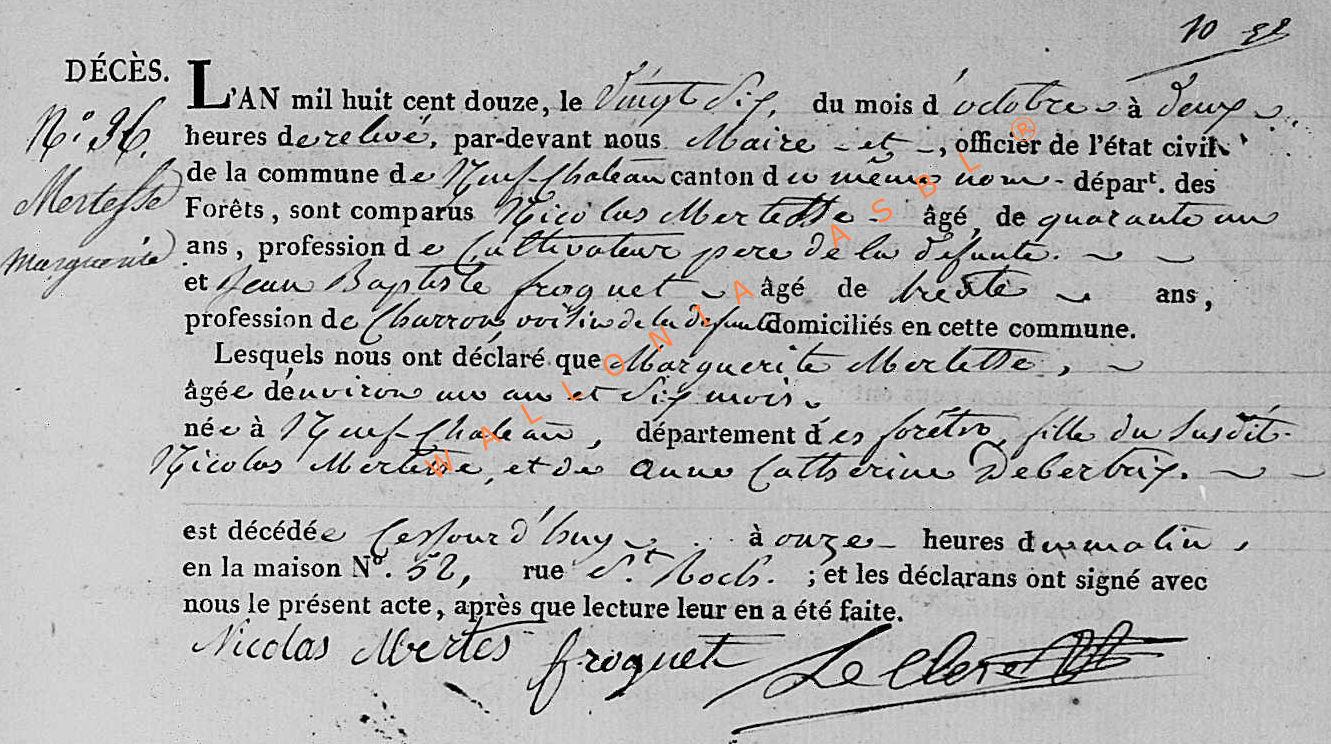 10 8bre
DÉCÈS.
N.° 36.
Mertesse
Marguerite
L'AN mil huit cent douze, le vingt Six, du mois d'octobre à deux
heures de relevé, par-devant nous Maire et, officier de l'état civil
de la commune de Neuf-Chateau canton du même nom départ. des
Forêts, sont comparus Nicolas Mertesse âgé, de quarante un
ans, profession de Cultivateur pere de la defunte.
et Jean Baptiste froguet âgé de trente ans,
profession de Charron, voisin de la defunte domiciliés en cette commune.
Lesquels nous ont déclaré que Marguerite Mertesse,
âgée denviron un an et Six mois
née à Neuf-Chateau, département des forêts, fille du Susdit
Nicolas Mertesse, et de anne Catherine Debertrix.
est décédée Cejourd'huy à onze heures du matin,
en la maison N°. 52, rue St. Roch. ; et les déclarans ont signé avec
nous le présent acte, après que lecture leur en a été faite.
Nicolas Mertes froguet Le Clere
WALLONIA ASBL ®